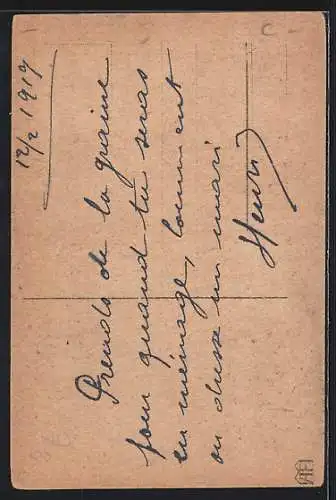 12/2 1917
Prends de la graine
pour quand tu seras
en ménage, comment
on dresse un mari
Henri